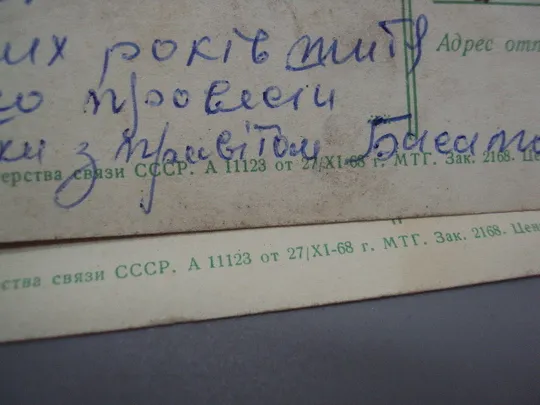 их років житт
Адрес отп
о провести
ки з привітом
ерства связи СССР. А 11123 от 27/XI-68 г. МТГ. Зак. 2168. Це
ства связи СССР. А 11123 от 27/XI-68 г. МТГ. Зак. 2168. Цен